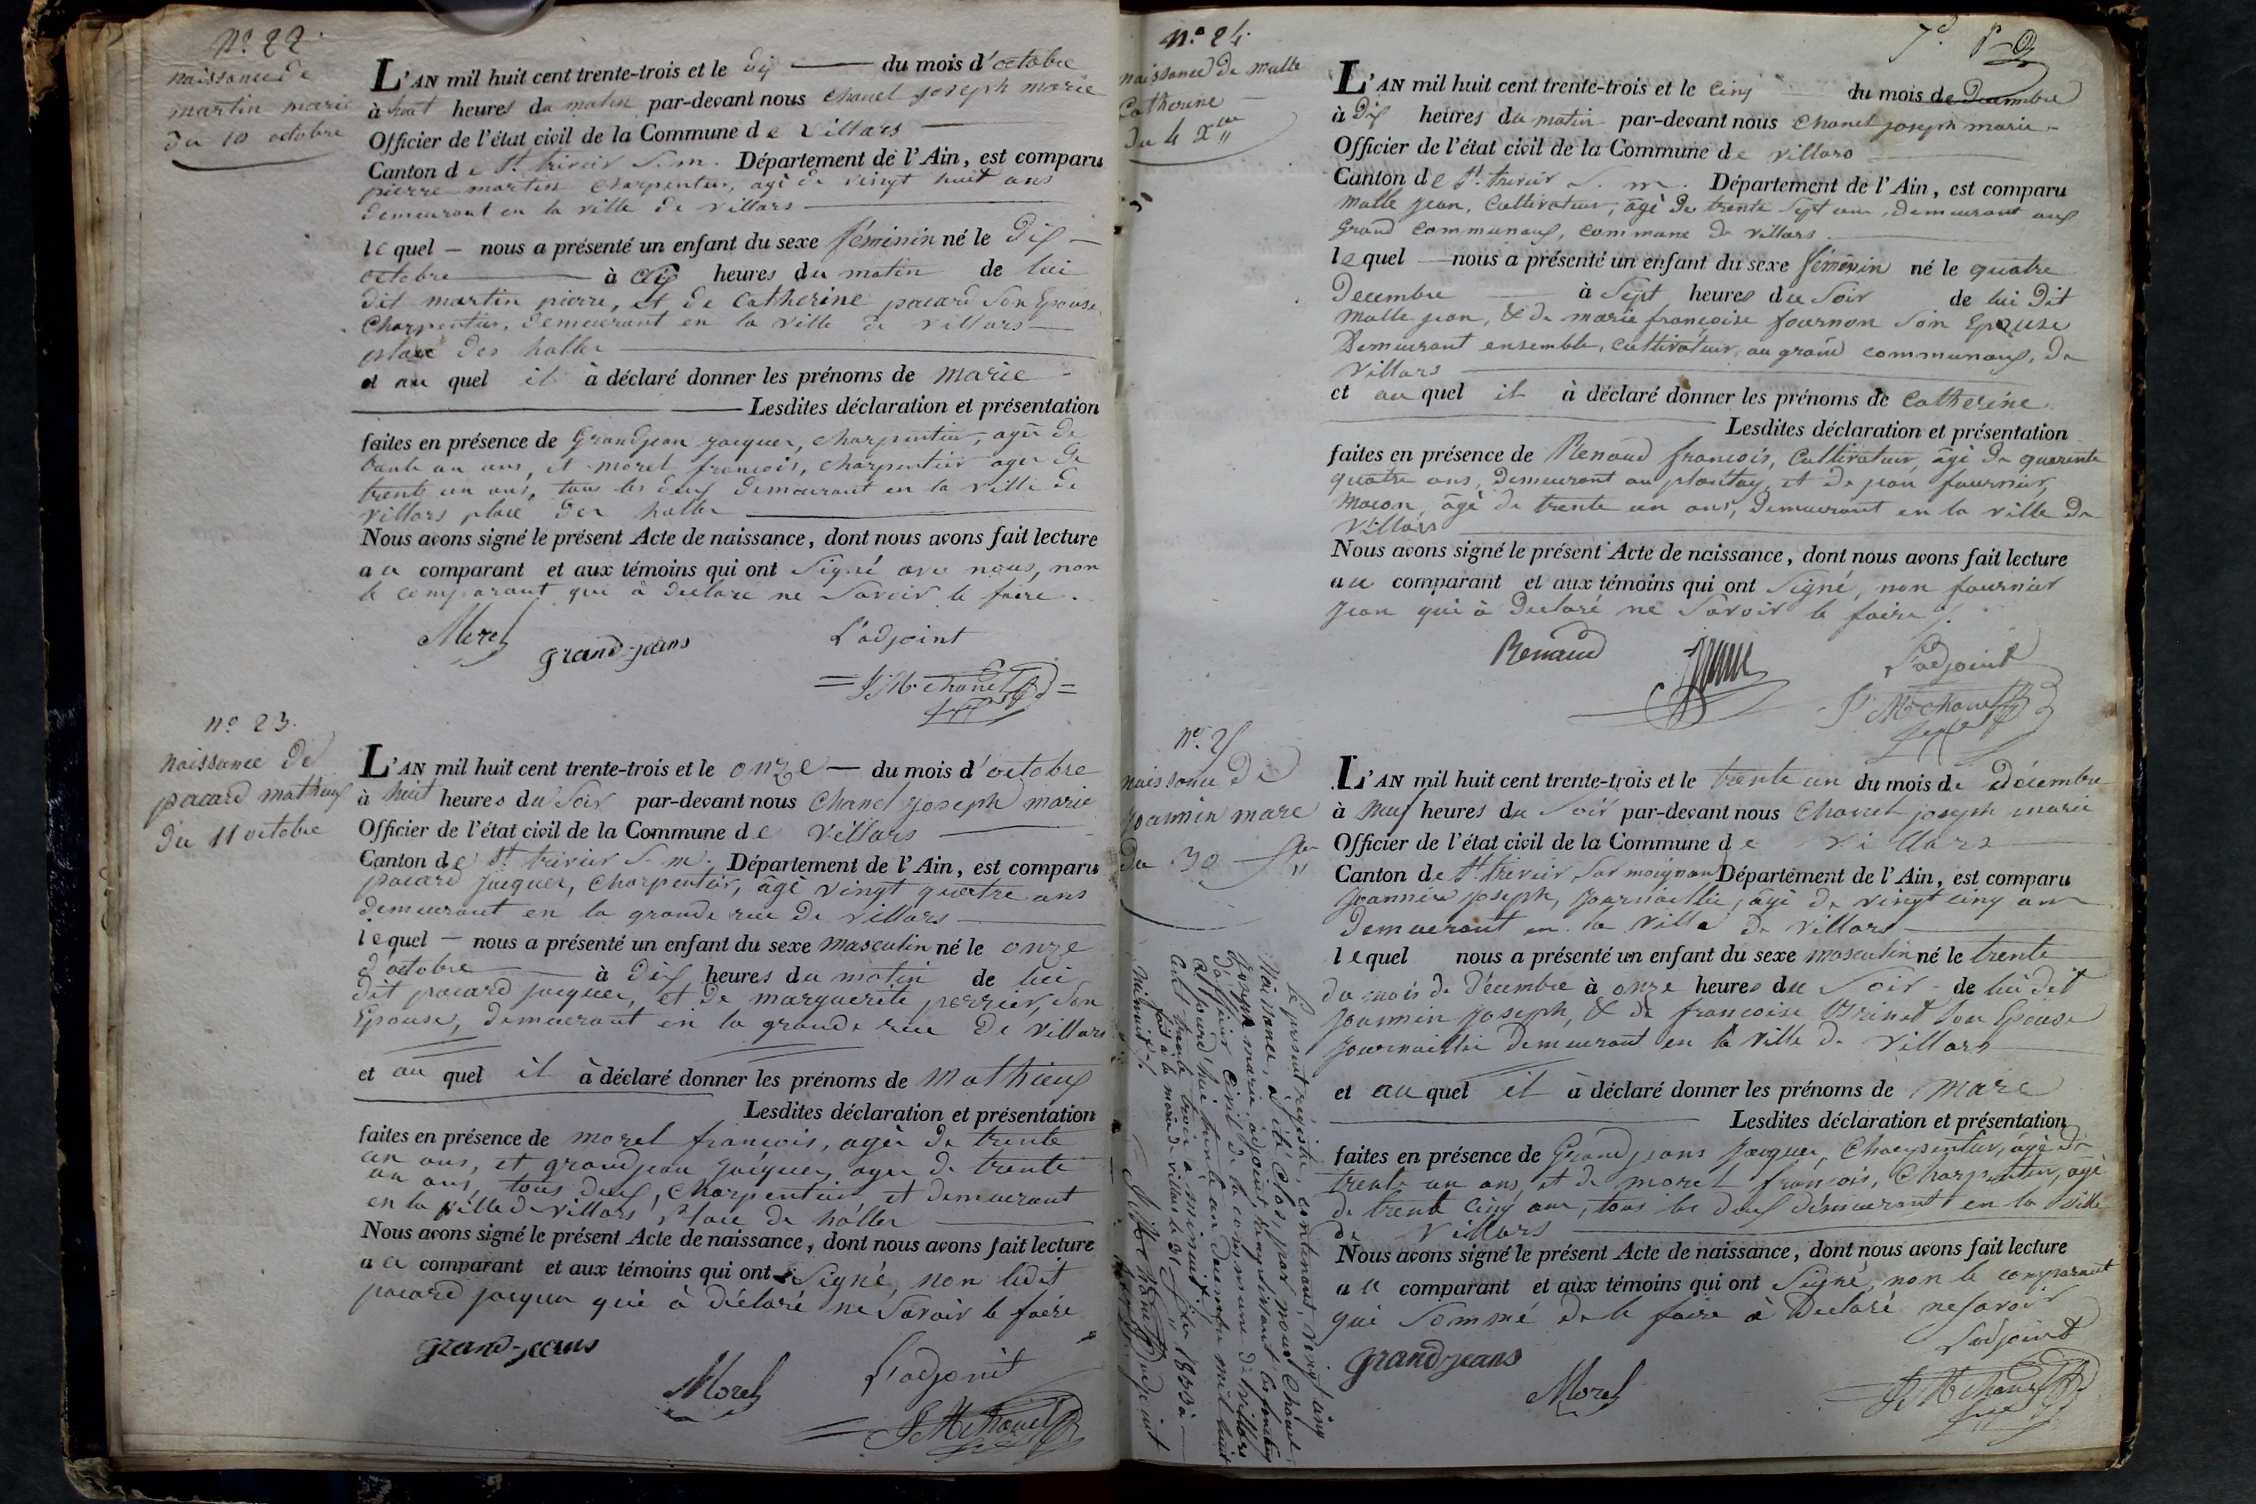 N.° 22.
naissance de
martin marie
du 10 octobre
L'AN mil huit cent trente-trois et le dix du mois d'octobre
à huit heures du matin par-devant nous chanel joseph marie
Officier de l'état civil de la Commune de villars
Canton de St. trivier S. m. Département de l'Ain, est comparu
pierre martin charpentier, agé de vingt huit ans
demeurant en la ville de villars
lequel — nous a présenté un enfant du sexe féminin né le dix
octobre à dix heures du matin de lui
dit martin pierre, et de catherine pacard son Epouse
Charpentier, demeurant en la ville de villars
place des halles
et au quel il à déclaré donner les prénoms de marie
Lesdites déclaration et présentation
faites en présence de Grandjean jacques, charpentier, agé de
trente un ans, et morel francois, charpentier agé de
trente un ans, tous les deux demeurant en la ville de
villars place des halles
Nous avons signé le présent Acte de naissance, dont nous avons fait lecture
au comparant et aux témoins qui ont signé avec nous, non
le comparant qui à declare ne Savoir le faire.
Morel
grand-jeans
L'adjoint
J. M. chanel
n.° 23.
naissance de
pacard mathieux
du 11 octobre
L'AN mil huit cent trente-trois et le onze — du mois d'octobre
à huit heures du Soir par-devant nous Chanel joseph marie
Officier de l'état civil de la Commune de Villars
Canton de St trivier S. m. Département de l'Ain, est comparu
pacard jacques, Charpentier, âgé vingt quatre ans
demeurant en la grande rue de villars
lequel — nous a présenté un enfant du sexe masculin né le onze
d'octobre à dix heures du matin de lui
dit pacard jacques, et de marguerite perrier, Son
Epouse, demeurant en la grande rue de villars
et au quel il à déclaré donner les prénoms de Mathieux
Lesdites déclaration et présentation
faites en présence de morel francois, agé de trente
un ans, et grandjean jacques, agé de trente
un ans, tous deux, charpentier et demeurant
en la ville de villars, place de halles
Nous avons signé le présent Acte de naissance, dont nous avons fait lecture
au comparant et aux témoins qui ont Signé, non ledit
pacard jacques qui à déclaré ne Savoir le faire
grand-jeans
Morel
L'adjoint
J. M. Chanel
n.° 24.
naissance de matte
Catherine
du 4 Xbre
L'AN mil huit cent trente-trois et le cinq du mois de Decembre
à Dix heures du matin par-devant nous Chanel joseph marie
Officier de l'état civil de la Commune de villars
Canton de St. trivier S. m. Département de l'Ain, est comparu
matte jean, Cultivateur, âgé de trente sept ans, demeurant aux
grand communaux, commune de villars
lequel — nous a présenté un enfant du sexe féminin né le quatre
Decembre à Sept heures du Soir de lui dit
matte jean, & de marie françoise fournon Son Epouse
Demeurant ensemble, cultivateur, au grand communaux, de
Villars
et au quel il à déclaré donner les prénoms de Catherine
Lesdites déclaration et présentation
faites en présence de Renaud francois, Cultivateur, âgé de quarente
quatre ans, demeurant au plantay, et de jean fournier,
macon, âgé de trente un ans, demeurant en la ville de
Villars
Nous avons signé le présent Acte de naissance, dont nous avons fait lecture
au comparant et aux témoins qui ont Signé, non fournier
jean qui à déclaré ne Savoir le faire
Renaud
L'adjoint
J. M. chanel
N.° 25
naissance de
joannin marc
du 30 Xbre
L'AN mil huit cent trente-trois et le trente un du mois de décembre
à neuf heures du Soir par-devant nous Chanel joseph marie
Officier de l'état civil de la Commune de Villars
Canton de St. trivier Sur moignans Département de l'Ain, est comparu
joannin joseph, journaillié, âgé de vingt cinq ans
demeurant en la Ville de Villars
lequel nous a présenté un enfant du sexe masculin né le trente
du mois de Décembre à onze heures du Soir de lui dit
joannin joseph, & de francoise Brinet Son Epouse
journaillié demeurant en la ville de Villars
et au quel il à déclaré donner les prénoms de Marc
Lesdites déclaration et présentation
faites en présence de Grandjeans Jacques, Charpentier, âgé de
trente un ans et de morel francois, Charpentier, âgé
de trente cinq ans, tous les deux démeurant en la Ville
de Villars
Nous avons signé le présent Acte de naissance, dont nous avons fait lecture
au comparant et aux témoins qui ont Signé, non le comparant
qui Sommé de le faire à Déclaré ne Savoir
L'adjoint
grandjeans
Morel
J. M. chanel
le présent régistre, contenant vingt cinq
Naissances, a été clos, par nous Chanel
Joseph marie, adjoint, remplissant les fonctions
d'officier civil de la commune de villars
aujourd'hui trente un decembre mil huit
cent trente trois à minuit.
fait à la mairie de villars le 31 Xbre 1833 à
minuit.
J. M. chanel adjoint